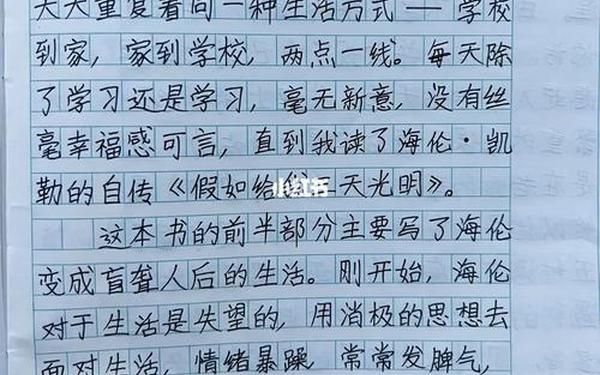 天天重复着同一种生活方式——学校
到家，家到学校，两点一线。每天除
了学习还是学习，毫无新意，没有丝
毫幸福感可言，直到我读了海伦·凯
勒的自传《假如给 天光明》。
小红书
这本书的前半部分主要写了海伦
变成盲聋人后的生活。刚开始，海伦
对于生活是失望的，用消极的思想去
面对生活，情绪暴躁，常常发脾气，